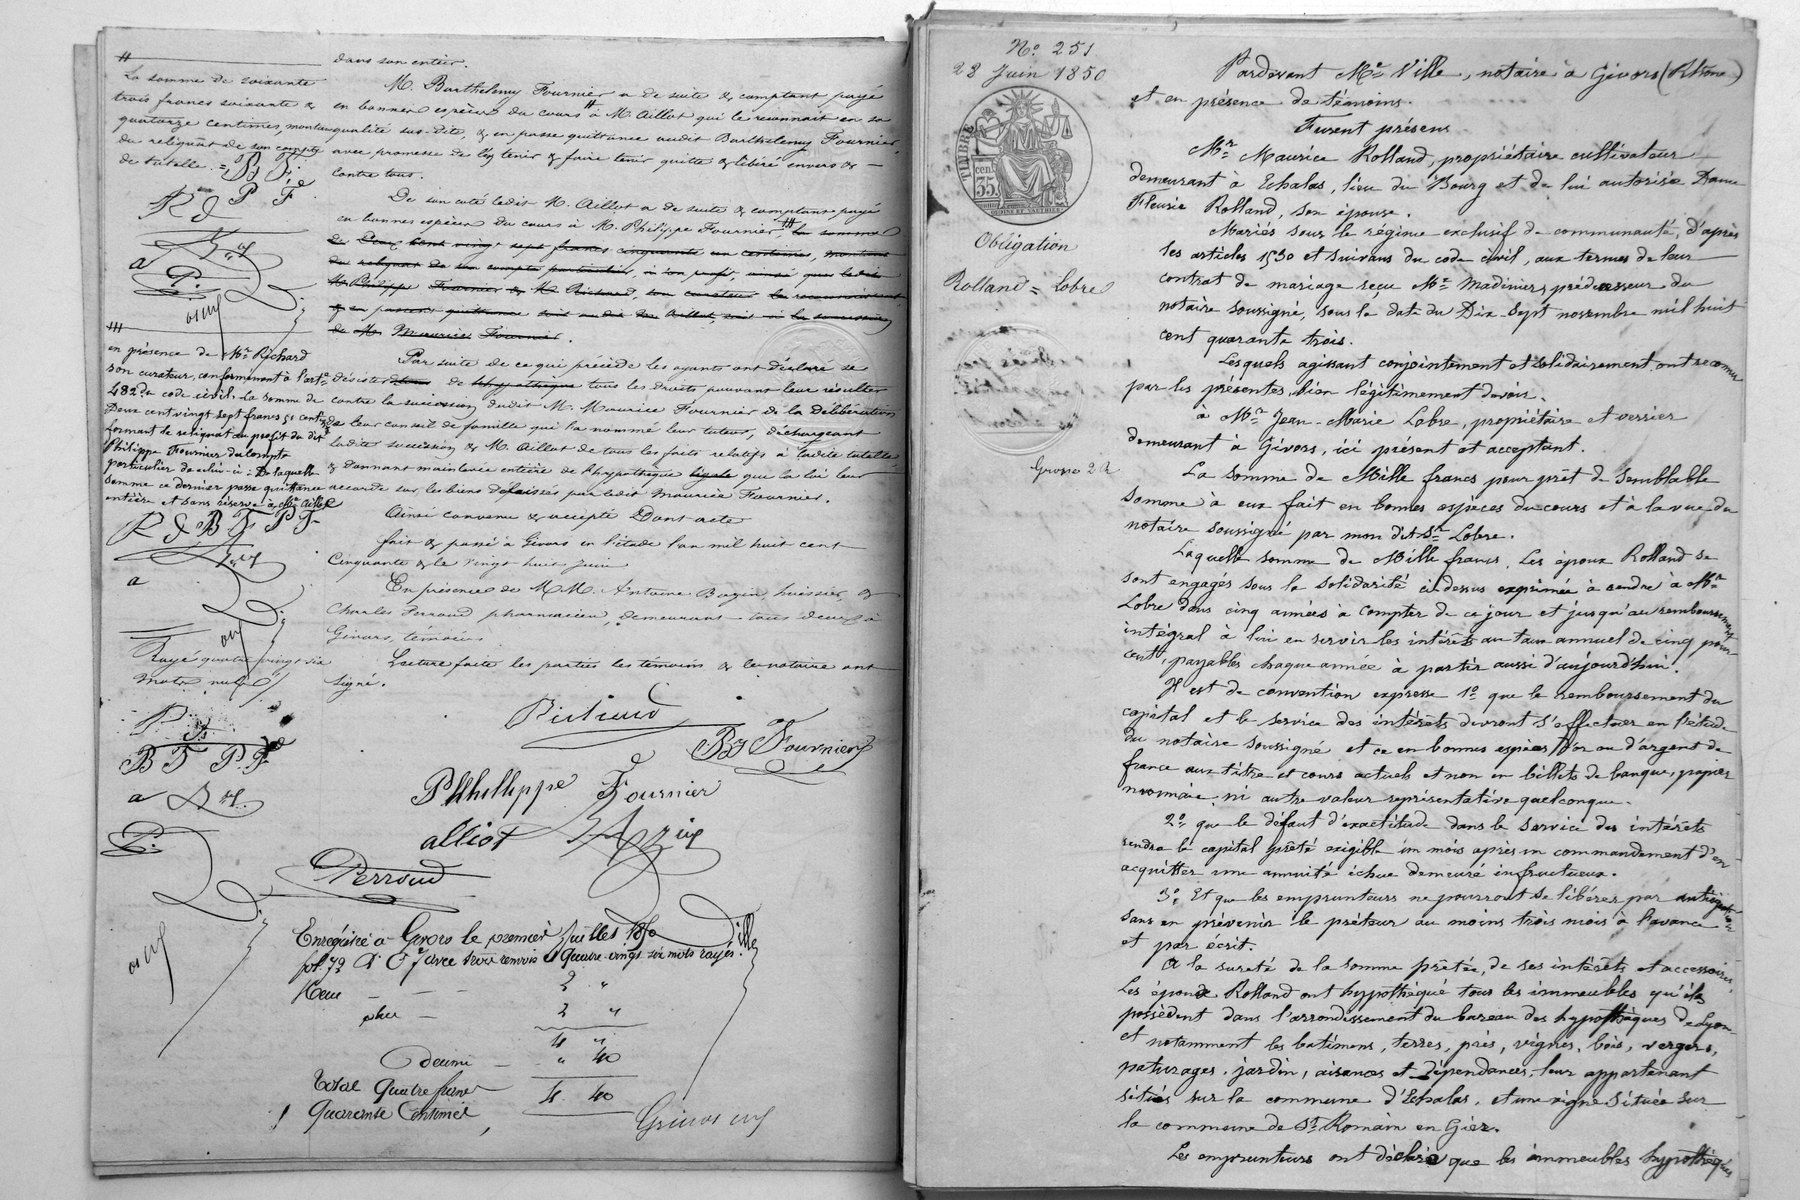 #
La somme de soixante
trois francs soixante &
quatorze centimes, montant
du reliquat de son compte
de tutelle. =
B F.
P F
a
P.
###
en présence de Mr. Richard
son curateur, conformément à l'arte.
482 du code civil. La somme de
Deux cent vingt sept francs 51 centes
formant le reliquat au profit du dit
Philippe Fournier du compte
particulier de celui-ci : De laquelle
somme ce dernier passe quittance
entière et sans réserve à Mr. aillot
B F P F
a
Rayé quatre vingt six
mots nuls
B F P. F.
a
P.
dans son entier.
M. Barthelemy Fournier a de suite & comptant payé
en bonnes espèces du cours # à M. Aillot qui le reconnait en sa
qualité sus-dite, & en passe quittance audit Barthelemy Fournier,
avec promesse de l'y tenir & faire tenir quitte & libéré envers & —
contre tous.
De son coté ledit M. Aillot a de suite & comptant payé
en bonnes espèces du cours à M. Philippe Fournier ### la somme
de Deux cent vingt sept francs cinquante un centimes, montant
du reliquat de son compte particulier, à son profit, ainsi que ledit
M. Philippe Fournier & M. Richard, son curateur le reconnaissent
& en passent quittance soit audit Mr Aillot, soit à la succession
de Mr. Maurice Fournier.
Par suite de ce qui précède les oyants ont déclaré se
désister de hypothèque tous les droits pouvant leur résulter
contre la succession dudit M. Maurice Fournier de la délibération
de leur conseil de famille qui l'a nommé leur tuteur, déchargeant
ladite succession & M. Aillot de tous les faits relatifs à ladite tutelle
& donnant mainlevée entière de l'hypothèque légale que la loi leur
accorde sur les biens délaissés par ledit Maurice Fournier.
Ainsi convenu & accepté Dont acte
fait & passé à Givors en l'étude l'an mil huit cent
Cinquante & le vingt huit juin
En présence de M.M. Antoine Bazin, huissier, &
Charles Perroud pharmacien, demeurant tous deux à
Givors, témoins
Lecture faite les parties les témoins & le notaire ont
signé.
Richard
B F Fournier
PHhillippe Fournier
alliot Bazin
Perroud
Ville
Enregistré à Givors le premier juillet 1850
fol. 79 avec trois renvois & quatre-vingt six mots rayés.
Reçu — — — 2 "
plus — 2 "
4 "
Décime — " 40
Total Quatre francs 4. 40
Quarante Centimes
No. 251
28 Juin 1850
TIMBRE
35 cen.
Obligation
Rolland = Lobre
Grosse 2 R
Pardevant Me. Ville, notaire à Givors (Rhône)
et en présence de témoins.
Furent présens
Mr. Maurice Rolland, propriétaire cultivateur
demeurant à Echalas, lieu du Bourg et de lui autorisée Dame
Fleurie Rolland, son épouse.
Mariés sous le régime exclusif de communauté, d'après
les articles 1530 et suivans du code civil, aux termes de leur
contrat de mariage reçu Me. Madinier, prédécesseur du
notaire soussigné, sous la date du Dix-Sept novembre mil huit
cent quarante trois.
Lesquels agissant conjointement et solidairement, ont reconnu
par les présentes bien légitimement devoir.
à Mr. Jean-Marie Lobre, propriétaire et verrier
demeurant à Givors, ici présent et acceptant.
La somme de Mille francs pour prêt de semblable
somme à eux fait en bonnes espèces du cours et à la vue du
notaire soussigné par mon dit Sr. Lobre.
Laquelle somme de Mille francs, les époux Rolland se
sont engagés sous la solidarité ci-dessus exprimée à rendre à Mr.
Lobre dans cinq années à compter de ce jour et jusqu'au remboursement
intégral à lui en servir les intérêts au taux annuel de cinq pour
cent, payables chaque année à partir aussi d'aujourd'hui.
Il est de convention expresse 1o. que le remboursement du
capital et le service des intérêts devront s'effectuer en l'étude
du notaire soussigné et ce en bonnes espèces d'or ou d'argent de
france aux titre et cours actuels et non en billets de banque, papier
monnaie, ni autre valeur représentative quelconque.
2o. que le défaut d'exactitude dans le service des intérêts
rendra le capital prêté exigible un mois après un commandement d'en
acquitter une annuité échue demeuré infructueux.
3o. Et que les emprunteurs ne pourront se libérer par anticipation
sans en prévenir le prêteur au moins trois mois à l'avance
et par écrit.
A la sureté de la somme prêtée, de ses intérêts et accessoires,
les époux Rolland ont hypothéqué tous les immeubles qu'ils
possèdent dans l'arrondissement du bureau des hypothèques de Lyon
et notamment les batimens, terres, près, vignes, bois, vergers,
paturages, jardin, aisances et Dépendances, leur appartenant
situés sur la commune d'Echalas, et une vigne située sur
la commune de St. Romain en Gier.
Les emprunteurs ont déclaré que les immeubles hypothéqués